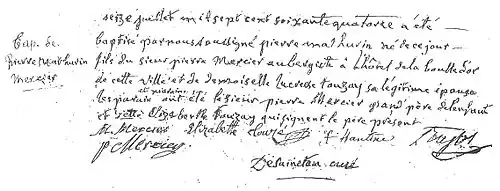 seize juillet mil sept cent soixante quatorze a été
Bap. de
Pierre Mathurin
Mercier
baptisé par nous soussigné pierre mathurin né de ce jour
fils du sieur pierre Mercier aubergiste à l'hôtel de la boulle d'or
de cette ville et de demoiselle Lucresse Touzay sa légitime épouse
les parain ont été le sieur pierre Mercier grand père de l'enfant
et maraine Elizabethe Touzay qui signent le père présent
M. Mercier Elizabette Touzé f. hautine
p. Mercier
curé